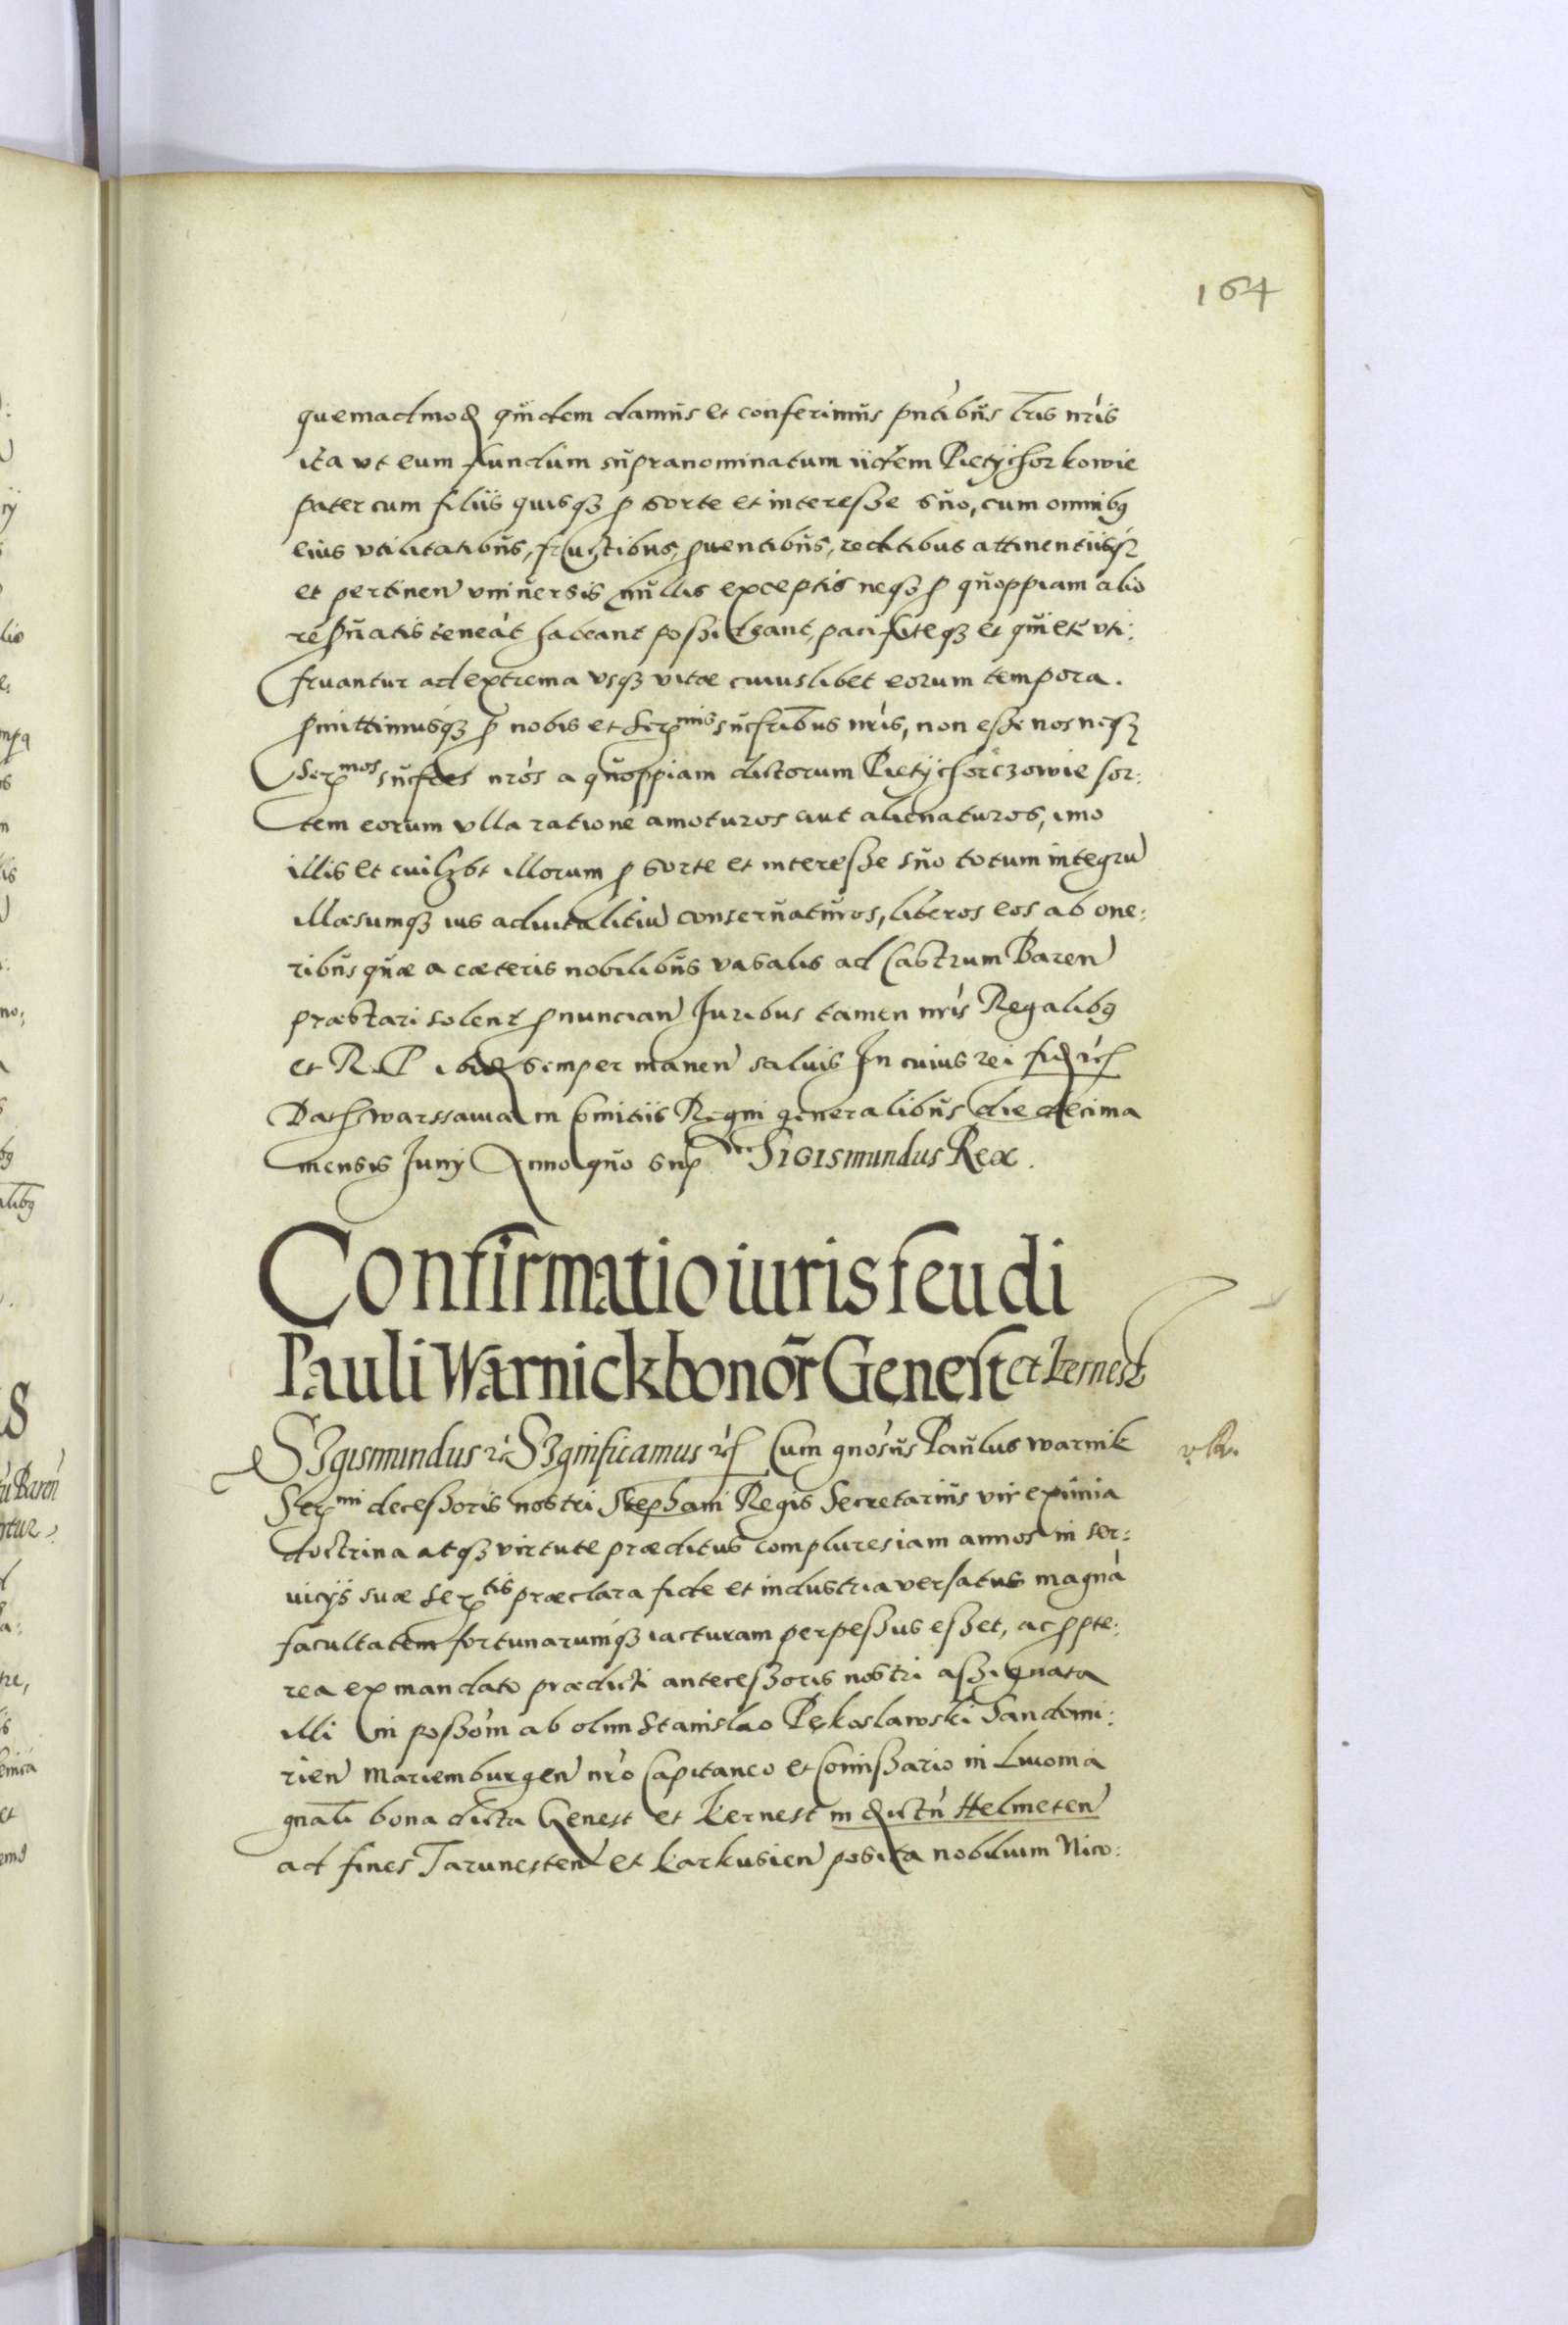 164
quemadmoꝺ quidem damus et conferimus pntibus lris nris
ita vt eum fundum supranominatum iidem Pietÿchorkowie
pater cum filiis quisqꝫ ꝓ sorte et interesse suo, cum omnibꝯ
eius vtilitatibus, fructibus, ꝓuentibus, reditibus attinentiisqꝫ
et pertinen vniuersis nullis exceptis neqꝫ ꝓ quoppiam alio
reseruatis teneat habeant possideant, pacificeqꝫ et quiete vti:
fruantur ad extrema vsqꝫ vitæ cuiuslibet eorum tempora.
ꝓmittimusqꝫ ꝓ nobis et Serꝫmis sucsribus nris, non esse nos neqꝫ
Serꝫmos sucsres nros a quoppiam dictorum Pietÿchorczowie sor:
tem eorum vlla ratione amoturos aut alienaturos, imo
illis et cuilꝫbt illorum ꝓ sorte et interesse suo totum integru
illæsumqꝫ ius aduitalitiu conseruaturos, liberos eos ab one:
ribus quæ a cæteris nobilibus vasalis ad Castrum Baren
præstari solent ꝓnuncian Juribus tamen nris Regalibꝯ
et R. P. ibiꝺ semper manen saluis Jn cuius rei fiꝺ rc
Dat Warssawiæ in Comitiis Regni generalibus die decima
mensis Junij Anno quo supꝛ Sigismundus Rex.
Confirmatio iuris feudi
Pauli Warnick bonor Genest et Kernest
Sigismundus rc Significamus rc Cum gnosus Paulus Warnik
Serꝫmi decessoris nostri Stephani Regis Secretarius vir eximia
doctrina atqꝫ virtute præditus complures iam annos in ser:
uicijs suæ Serꝫtis præclara fide et industria versatus magna
facultatem fortunarumqꝫ iacturam perpessus esset, ac ꝓpte:
rea ex mandato prædicti antecessoris nostri assignata
illi in possom ab olim Stanislao Pękoslawski Sandomi:
rien Mariemburgen nro Capitaneo et Comissario in Liuonia
gnali bona dicta Genest et Kernest in ꝺictu Helmeten
ad fines Taruuesten et Karkusien posita nobilium Nico: